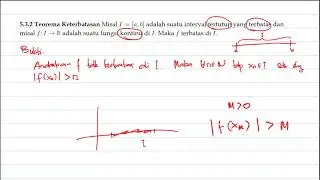 5.3.2 Teorema Keterbatasan Misal I := [a, b] adalah suatu interval tertutup yang terbatas dan
misal f : I → ℝ adalah suatu fungsi kontinu di I. Maka f terbatas di I.
a b
I
Bukti.
Andaikan f tak terbatas di I. Maka ∀n∈ℕ
|f(xₙ)| > n
M>0
|f(xₙ)| > M
I